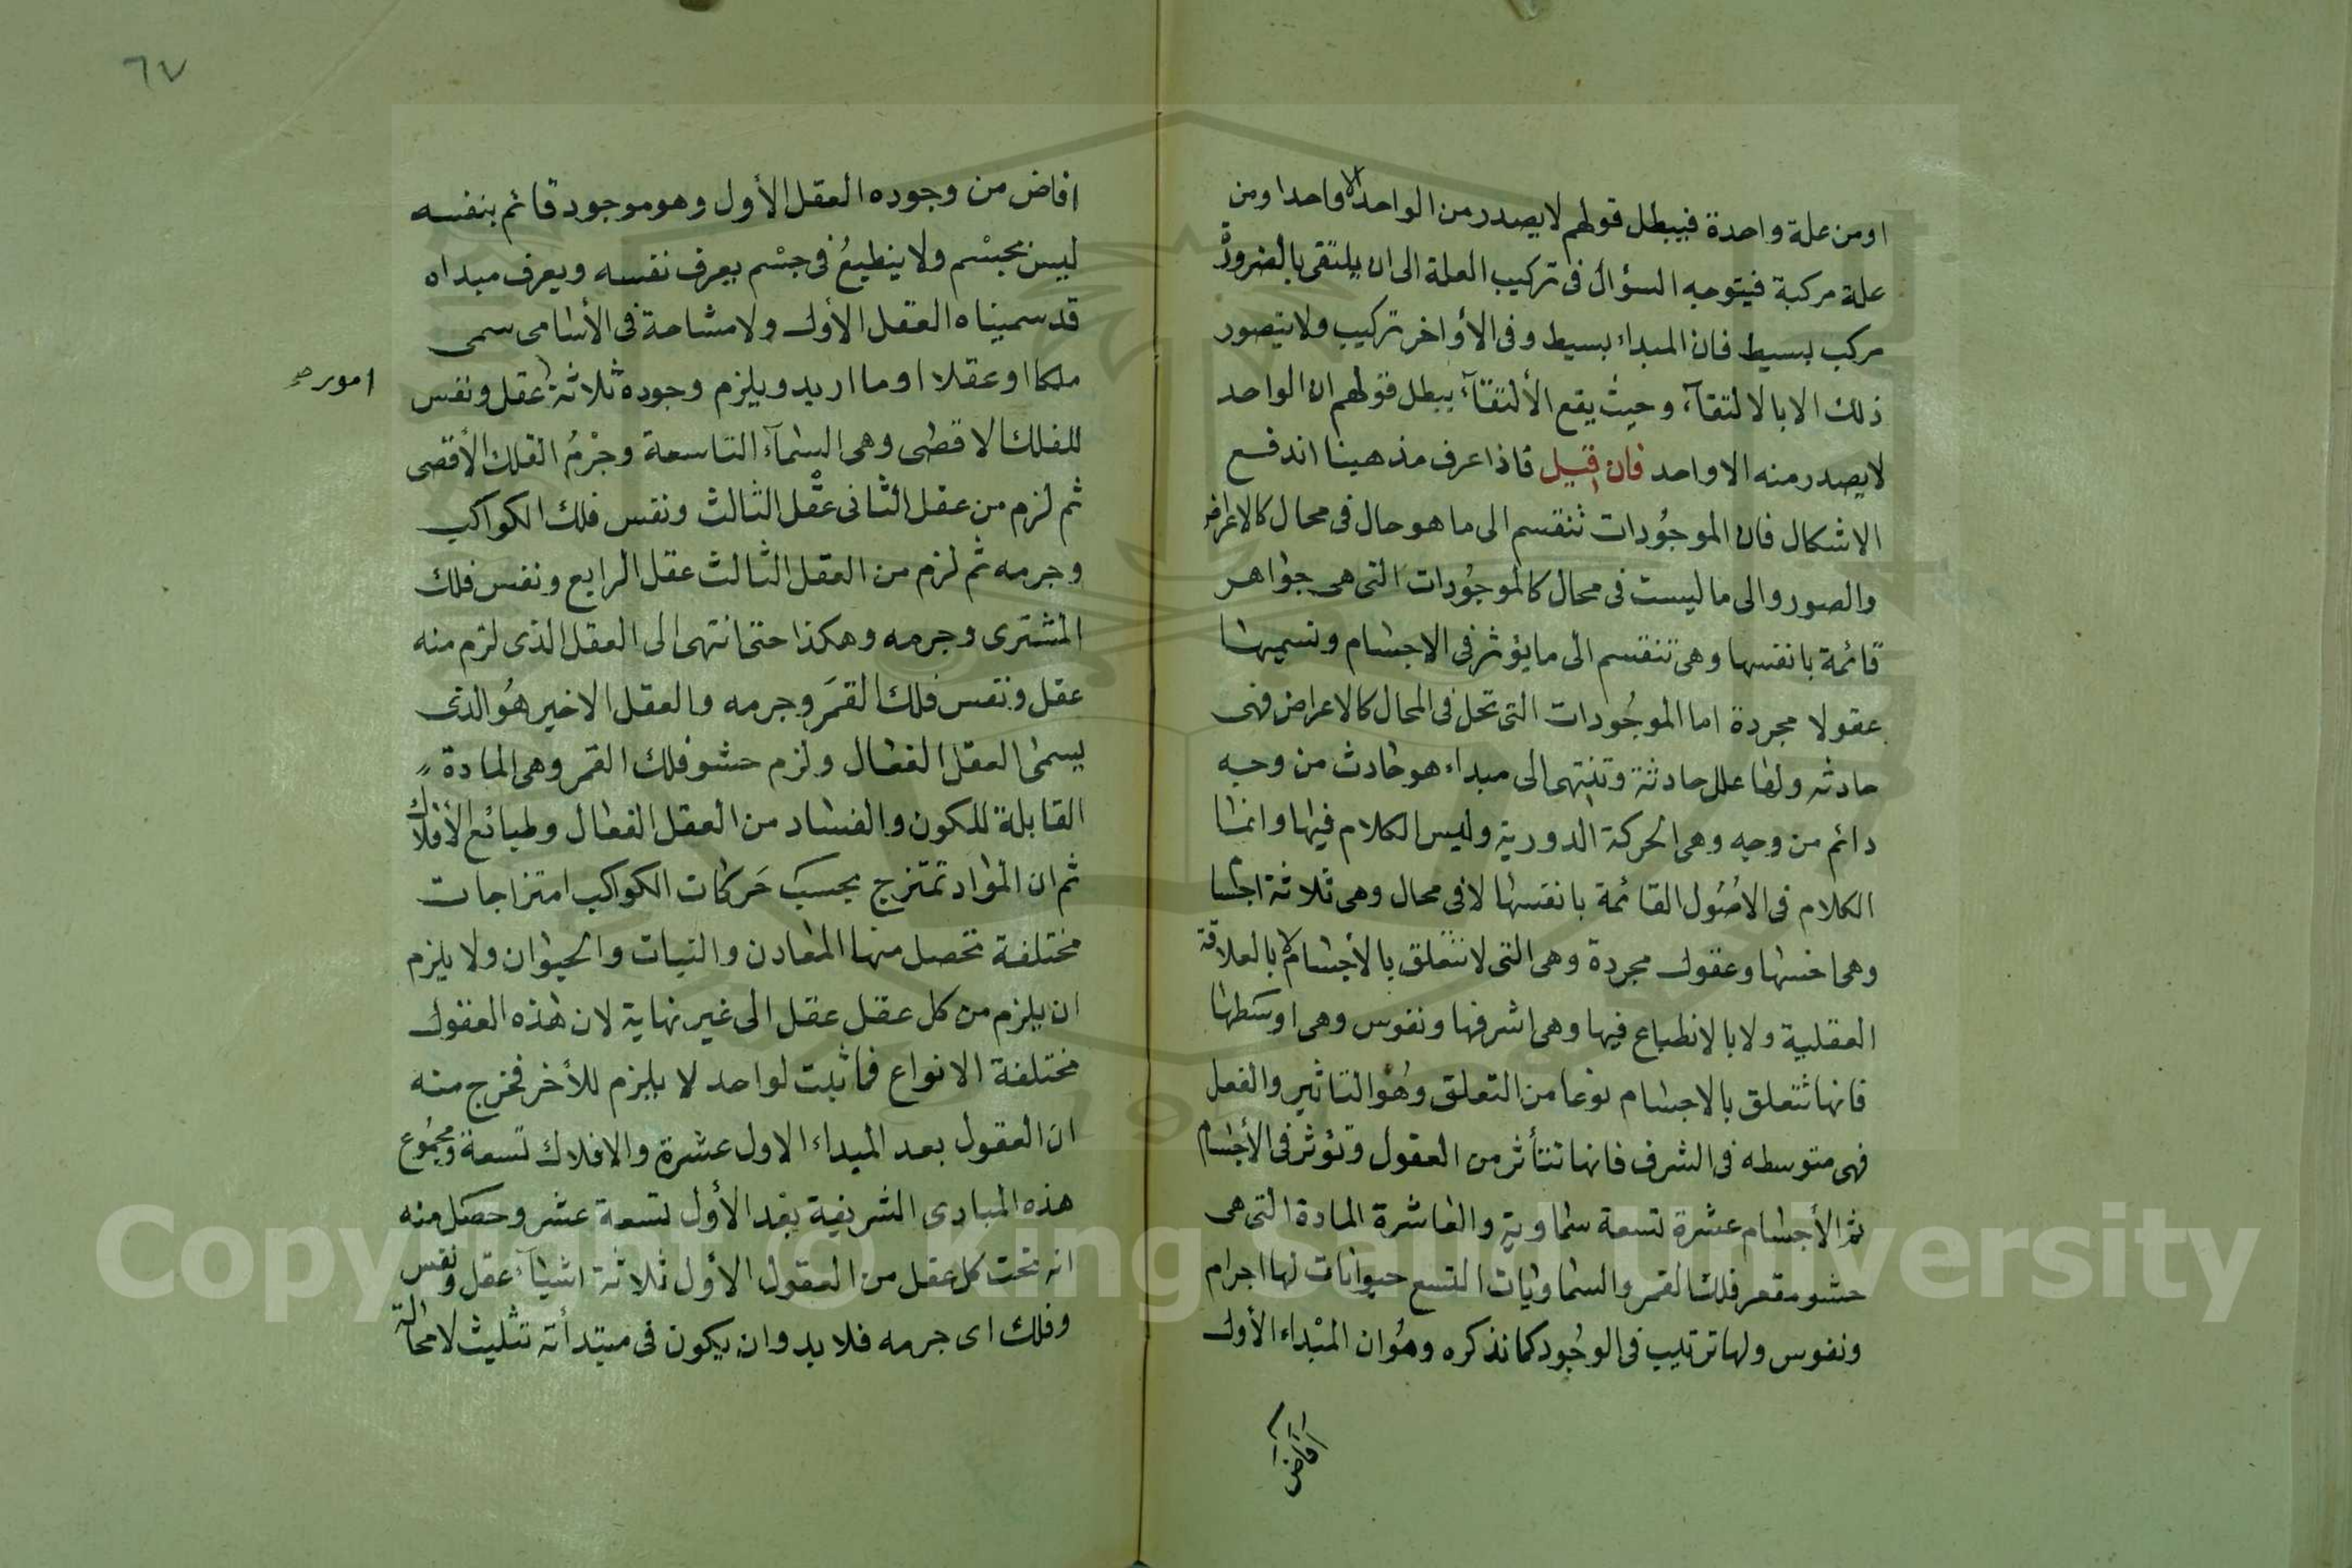 اومن علة واحدة فيبطل قولهم لايصدر من الواحد الا واحدا ومن
علة مركبة فيتوجه السؤال فى تركيب العلة الى ان يلتقى بالضرورة
مركب بسيط فان المبداء بسيط وفى الأواخر تركيب ولايتصور
ذلك الا بالالتقآء وحيث يقع الألتقآء يبطل قولهم ان الواحد
لايصدر منه الا واحد فان قيل فاذا عرف مذهبنا اندفع
الاشكال فان الموجُودات تنقسم الى ما هو حال فى محال كالاعراض
والصور والى ماليست فى محال كالموجُودات التى هى جواهر
قائمة بانفسها وهى تنقسم الى مايؤثر فى الاجسام ونسميها
عقولا مجردة اما الموجُودات التى تحل فى المحال كالاعراض فهى
حادثه ولها علل حادثة وتنتهى الى مبداء هو حادث من وجه
دائم من وجه وهى الحركة الدورية وليس الكلام فيها وانما
الكلام فى الاصُول القائمة بانفسها لا فى محال وهى ثلاثة اجسا
وهى اخسها وعقول مجردة وهى التى لاتتعلق بالأجسام لا بالعلاقة
العقلية ولابالانطباع فيها وهى اشرفها ونفوس وهى اوسَطها
فانها تتعلق بالاجسام نوعا من التعلق وهُو التاثير والفعل
فهى متوسطه فى الشرف فانها تتأثر من العقول وتؤثر فى الأجسام
ثم الأجسام عشرة تسعة سماوية والعاشرة المادة التى هى
حشو مقعر فلك القمر والسماويات التسع حيوانات لها اجرام
ونفوس ولها ترتيب فى الوجُود كما نذكره وهُو ان المبْداء الأول
افاض
٦٧
افاض من وجوده العقل الأول وهو موجود قائم بنفسه
ليس بجسْم ولا ينطبعُ فى جسْم يعرف نفسه ويعرف مبداه
قد سميناه العقل الأول ولامشاحة فى الأسامى سمى
ملكا او عقلا او ما اريد ويلزم وجوده ثلاثة عقل ونفس
امور صح
للفلك الاقطى وهى السمآء التاسعة وجرْمُ الفلك الأقصى
ثم لزم من عقل الثانى عقْل الثالث ونفس فلك الكواكب
وجرمه ثم لزم من العقل الثالث عقل الرابع ونفس فلك
المشترى وجرمه وهكذا حتى انتهى الى العقل الذى لزم منه
عقل ونفس فلك القمَر وجرمه والعقل الاخير هُو الذى
يسمى العقل الفعال ولزم حشو فلك القمر وهى المادة
القابلة للكون والفساد من العقل الفعال وطبائع الأفلاك
ثم ان المواد تمتزج بحسبَ حَركات الكواكب امتزاجات
مختلفة تحصل منها المعادن والنبات والحيوان ولا يلزم
ان يلزم من كل عقل عقل الى غير نهاية لان هذه العقول
مختلفة الانواع فما ثبت لواحد لا يلزم للأخر فخرج منه
ان العقول بعد المبداء الاول عشرة والافلاك تسعة ومجمُوع
هذه المبادى الشريفة بعْد الأول تسعة عشر وحصَل منه
انه تحت كل عقل من العقول الأول ثلاثة اشيآء عقل ونفس
وفلك اى جرمه فلا بد وان يكون فى مبتدأته تثليث لامحالة
Copyright © King Saud University